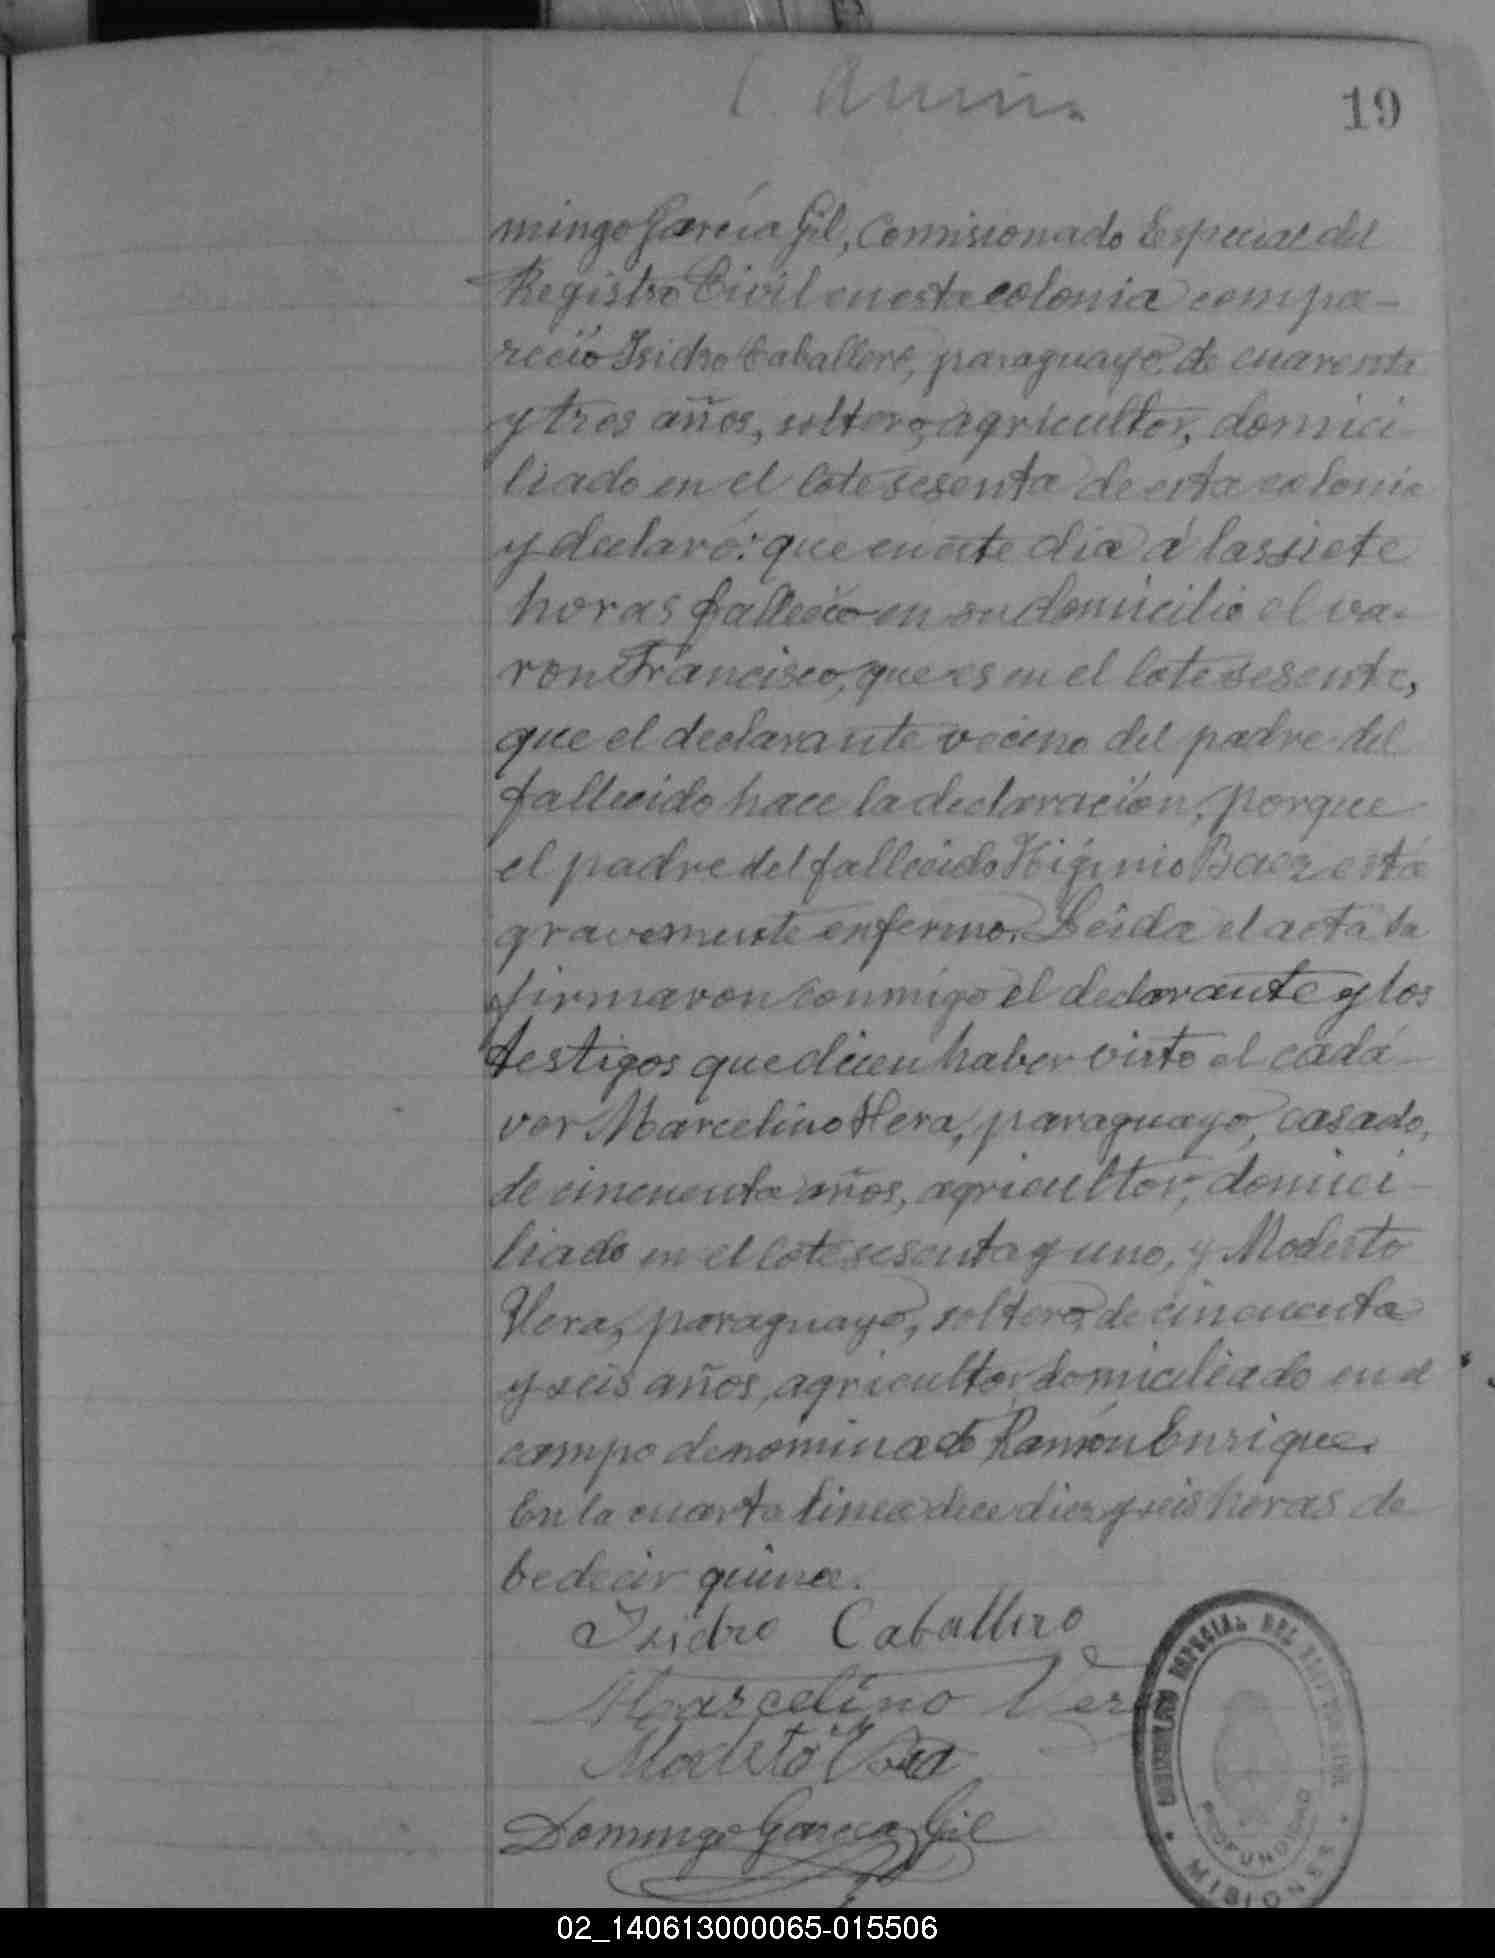 19
mingo García Gil, Comisionado Especial del
Registro Civil en esta colonia compa-
reció Isidro Caballero, paraguayo, de cuarenta
y tres años, soltero, agricultor, domici-
liado en el lote sesenta de esta colonia
y declaró: que en este dia á las siete
horas falleció en su domicilio el va-
ron Francisco, que es en el lote sesenta,
que el declarante vecino del padre del
fallecido hace la declaración, porque
el padre del fallecido Higinio Baez está
gravemente enfermo. Leída el acta la
firmaron conmigo el declarante y los
testigos que dicen haber visto el cadá-
ver Marcelino Vera, paraguayo, casado,
de cincuenta años, agricultor, domici-
liado en el lote sesenta y uno, y Modesto
Vera, paraguayo, soltero, de cincuenta
y seis años, agricultor, domiciliado en el
campo denominado Ramón Enrique.
En la cuarta linea dice diez y seis horas de
be decir quince.
Isidro Caballero
Marcelino Vera
Modesto Vera
Domingo García Gil
ESPECIAL DEL
PROFUNDIDAD
MISIONES
02_140613000065-015506